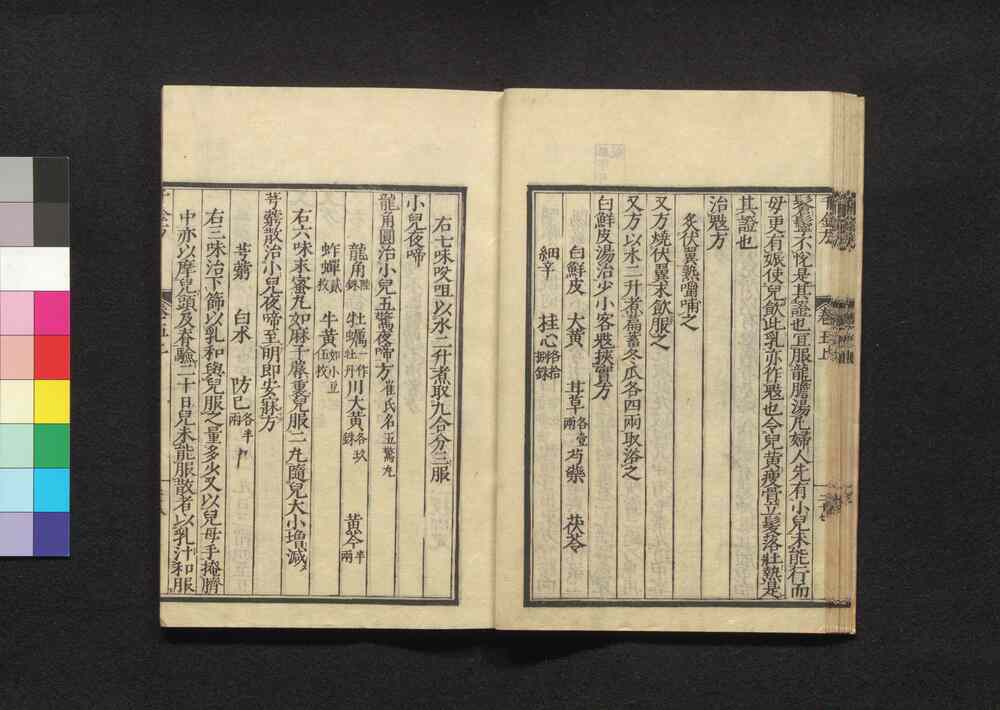 鬇鬡不悅是其證也宜服龍膽湯凡婦人先有小兒未能行而
母更有娠使兒飲此乳亦作鬾也令兒黃瘦骨立髮落壯熱是
其證也
治鬾方
炙伏翼熟嚼哺之
又方燒伏翼末飲服之
又方以水二升煮萹蓄冬瓜各四兩取浴之
白鮮皮湯治少小客鬾挾實方
白鮮皮 大黃 甘草各壹兩 芍藥 茯苓
細辛 桂心各拾捌銖
右七味㕮咀以水二升煮取九合分三服
小兒夜啼
龍角圓治小兒五驚夜啼方崔氏名五驚丸
龍角叁銖 牡蠣一作牡丹 川大黃各玖銖 黃芩半兩
蚱蟬貳枚 牛黃如小豆伍枚
右六味末蜜丸如麻子蓐裏兒服二丸隨兒大小增減
芎藭散治小兒夜啼至明即安寐方
芎藭 白朮 防己各半兩
右三味治下篩以乳和與兒服之量多少又以兒母手掩臍
中亦以摩兒頭及脊驗二十日兒未能服散者以乳汁和服